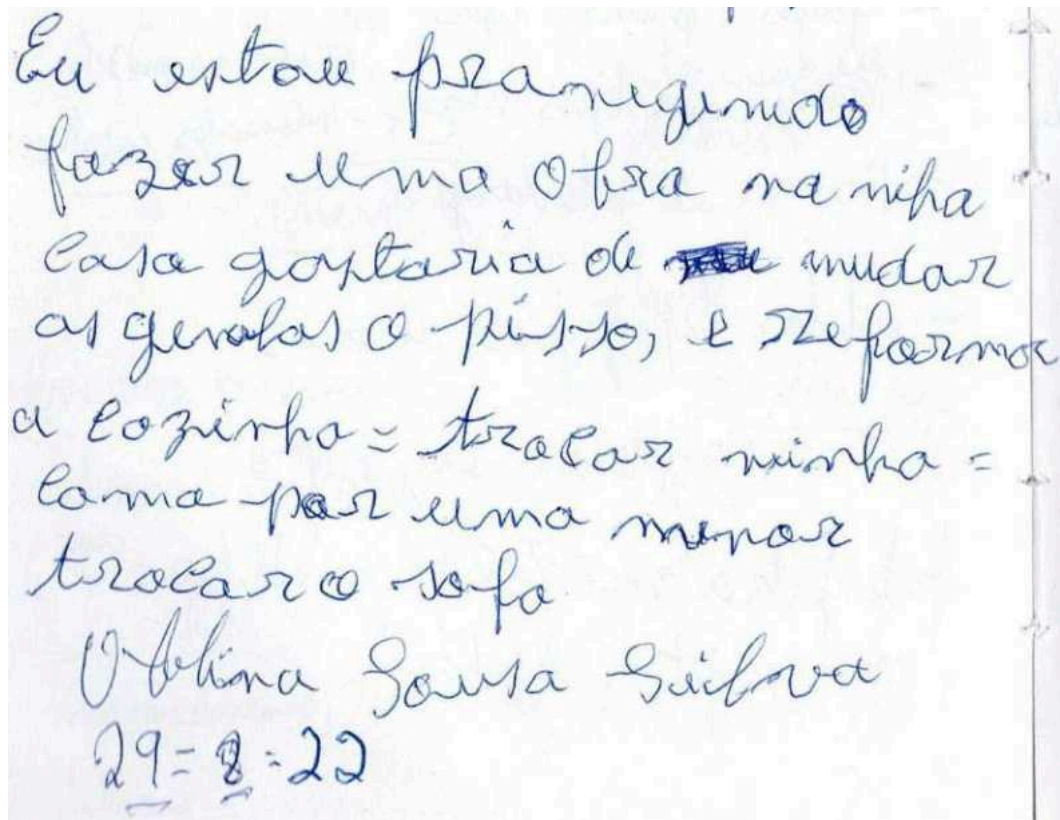 Eu estou pranegendo
fazer uma obra na niha
casa gostaria de mudar
as genelas o pisso, e reformar
a cozinha = trocar minha =
cama por uma menor
trocar o sofa
Sousa Silva
29=8=22